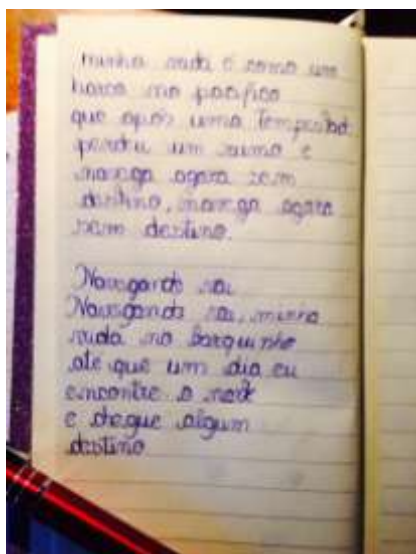 minha vida é como um
barco no pacifico
que após uma Tempestad
perdeu um rumo e
navega agora sem
destino, navega agora
sem destino.
Navegando vai
Navegando vai, minha
vida no barquinho
até que um dia eu
encontre o norte
e chegue algum
destino